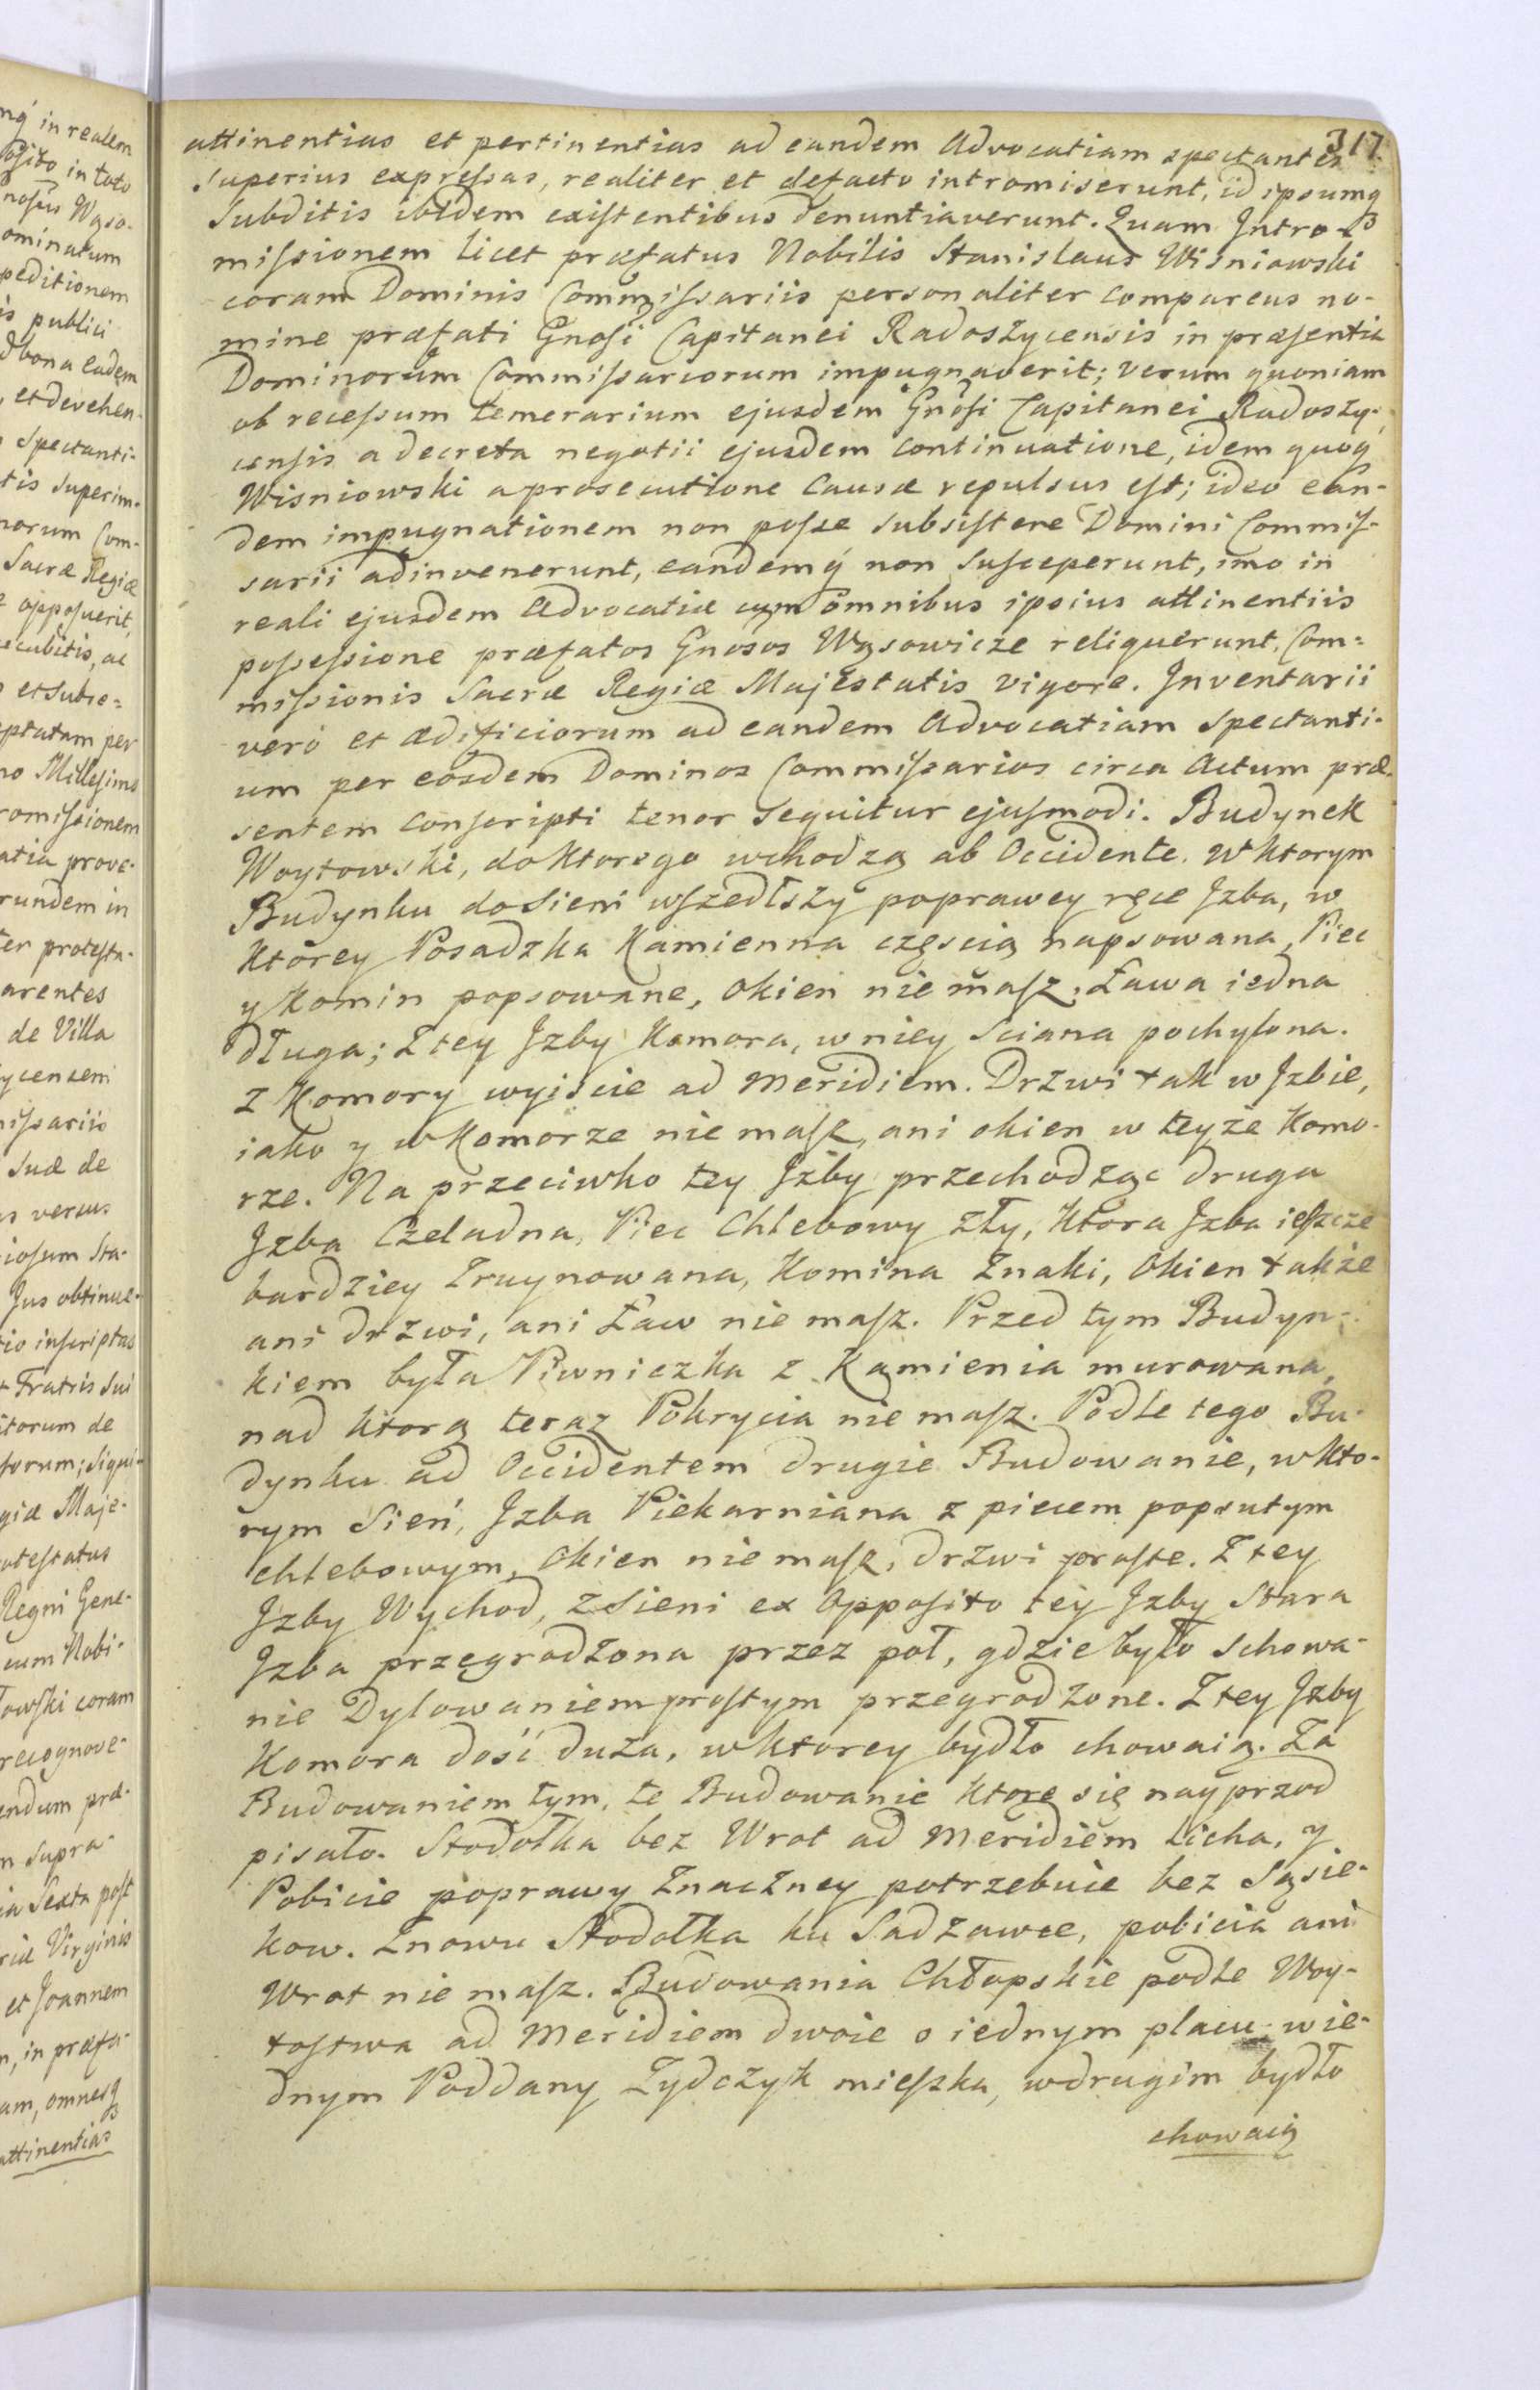 317
attinentias et pertinentias ad eandem Advocatiam spectantes
superius expreſsas, realiter et defacto intromiserunt, id ipsumq
Subditis ibidem exiſtentibus denuntiaverunt. Quam Intro-
miſsionem licet præfatus Nobilis Stanislaus Wisniowski
coram Dominis Commiſsariis personaliter compareus no-
mine præfati Gnoſi Capitanei Radoszycensis in præſentia
Dominorum Commiſsariorum impugnaverit; verum quoniam
ob receſsum temerarium ejusdem Gnoſi Capitanei Radoszy-
censis a decreta negotii ejusdem continuatione, idem quoq
Wisniowski a prosecutione Causæ repulsus eſt; ideo ean-
dem impugnationem non poſse subsiſtere Domini Commiſ-
sarii adinvenerunt, eandemq́ non Suſceperunt, imo in
reali ejusdem Advocatiæ cum omnibus ipsius attinentiis
poſseſsione præfatos Gnosos Wąsowicze reliquerunt, Com=
miſsionis Sacræ Regiæ Majestatis vigore. Inventarii
vero et ædificiorum ad eandem Advocatiam Spectanti-
um per eosdem Dominos Commiſsarios circa Actum præ-
sentem conſcripti tenor sequitur ejuſmodi. Budynek
Woytowski, do ktorego wchodzą ab Occidente. W ktorym
Budynku do Sieni wſzedłszy poprawey ręce Jzba, w
ktorey Posadzka Kamienna częscią napsowana, Piec
y Komin popsowane, Okien nie maſz, Ława iedna
długa; Z tey Jzby Komora, w niey Sciana pochylona.
z Komory wyiscie ad meridiem. Drzwi tak w Jzbie,
iako y w Komorze nie maſz, ani okien w teyże Komo-
rze. Na przeciwko tey Jzby przechodząc druga
Jzba Czeladna, Piec Chlebowy zły, Ktora Jzba ieſzcze
bardziey Zruynowana, Komina Znaki, Okien także
ani drzwi, ani Ław nie maſz. Przed tym Budyn-
kiem była Piwniczka z Kamienia murowana,
nad ktorą teraz Pokrycia nie maſz. Podle tego Bu-
dynku ad Occidentem drugie Budowanie, w kto-
rym Sień, Jzba Piekarniana z piecem popsutym
chlebowym, Okien nie maſz, drzwi proſte. Z tey
Jzby Wychod, z Sieni ex Oppoſito tey Jzby Stara
Jzba przegrodzona przez poł, gdzie było Schowa-
nie Dylowaniem proſtym przegrodzone. Z tey Jzby
Komora dość duża, w ktorey bydło chowaią. Za
Budowaniem tym, te Budowanie Ktore się nayprzod
pisało. Stodołka bez Wrot ad Meridiem Licha, y
Pobicie poprawy Znaczney potrzebuie bez Sąsie-
kow. Znowu Stodołka ku Sadzawce, pobicia ani
Wrot nie maſz. Budowania Chłopskie podle Woy-
toſtwa ad Meridiem dwoie o iednym placu w ie-
dnym Poddany Zydczyk mieſzka, w drugim bydło
chowaią